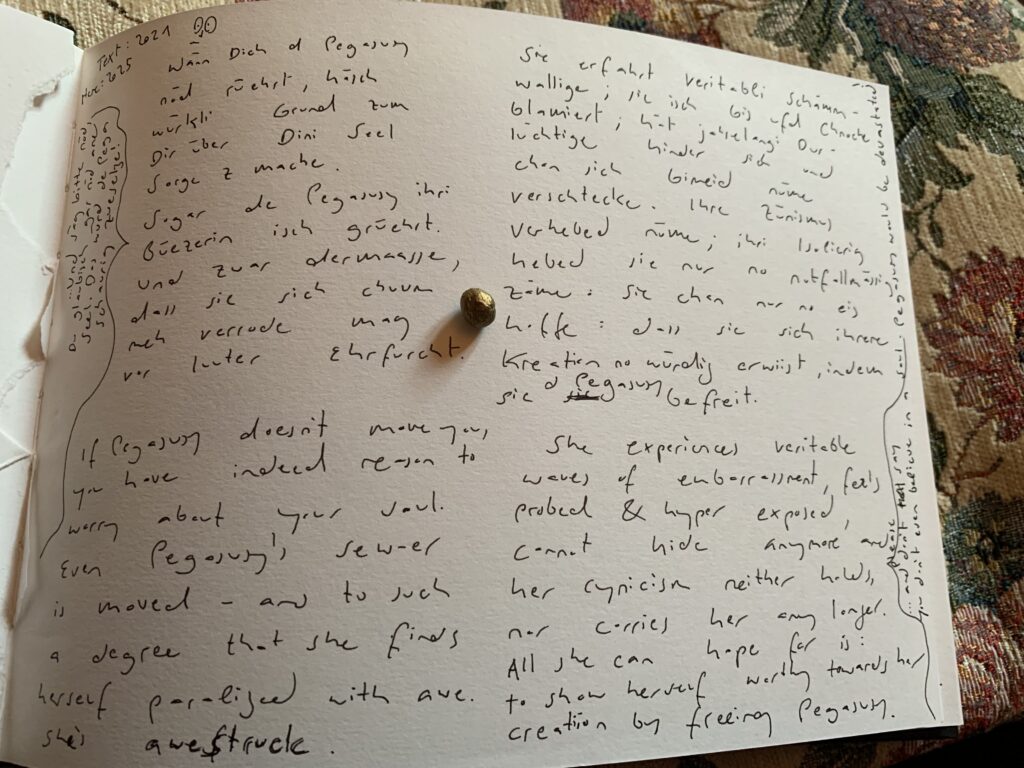 Text: 2021
Here: 2025
Wänn Dich d Pegasusy
nöd rüehrt, häsch
würkli Grund zum
Dir über Dini Seel
Sorge z mache.
Sogar de Pegasusy ihri
Büezerin isch grüehrt.
Und zwar dermaasse,
dass sie sich chuum
meh verrode mag
vor luter Ehrfurcht.
If Pegasusy doesn't move you,
you have indeed reason to
worry about your soul.
Even Pegasusy's sew-er
is moved – and to such
a degree that she finds
herself paralized with awe.
she's awestruck.
Und säg bitte nöd
Du glaubisch gar nöd and
Seel! Das würd de Pegasusy
schuurig
Sie erfahrt veritabli Schamm-
wallige; sie isch bis ufd Chnoche
blamiert; hät jahrelangi Dur-
lüchtige hinder sich und
chan sich bimeid nüme
verschtecke. Ihre Zünismus
verhebed nüme; ihri Isolierig
hebed sie nur no notfallmässig
zäme: Sie chan nur no eis
hoffe: dass sie sich ihrere
Kreation no würdig erwiist, indem
sie d Pegasusy befreit.
She experiences veritable
waves of embarrassment, feels
probed & hyper exposed,
cannot hide anymore and
her cynicism neither holds,
nor carries her any longer.
All she can hope for is:
to show herself worthy towards her
creation by freeing Pegasusy.
and please don't say
you don't even believe in a soul. Pegasusy would be devastated